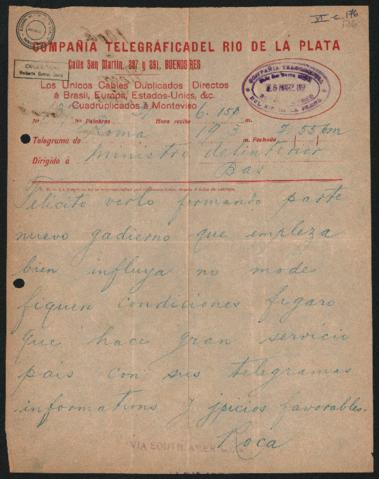 VI-c. 176
COMPAÑIA TELEGRÁFICA DEL RIO DE LA PLATA
Calle San Martin, 337 y 351, BUENOS AIRES
Los Unicos Cables Duplicados Directos
á Brasil, Europa, Estados-Unidos, &c.
Cuadruplicados á Montevideo
Nº Palabras Hora recibo 6.15
Telegrama de Roma m. Fechado 7.55
Dirigido á Ministro delinterior
Bas
Felicito verlo formando parte
nuevo gadierno que empieza
bien influya no mode
fiquen condiciones figaro
que hace gran servicio
pais con sus telegramas
informations y jpicios favorables.
Roca
VIA SOUTH AMER